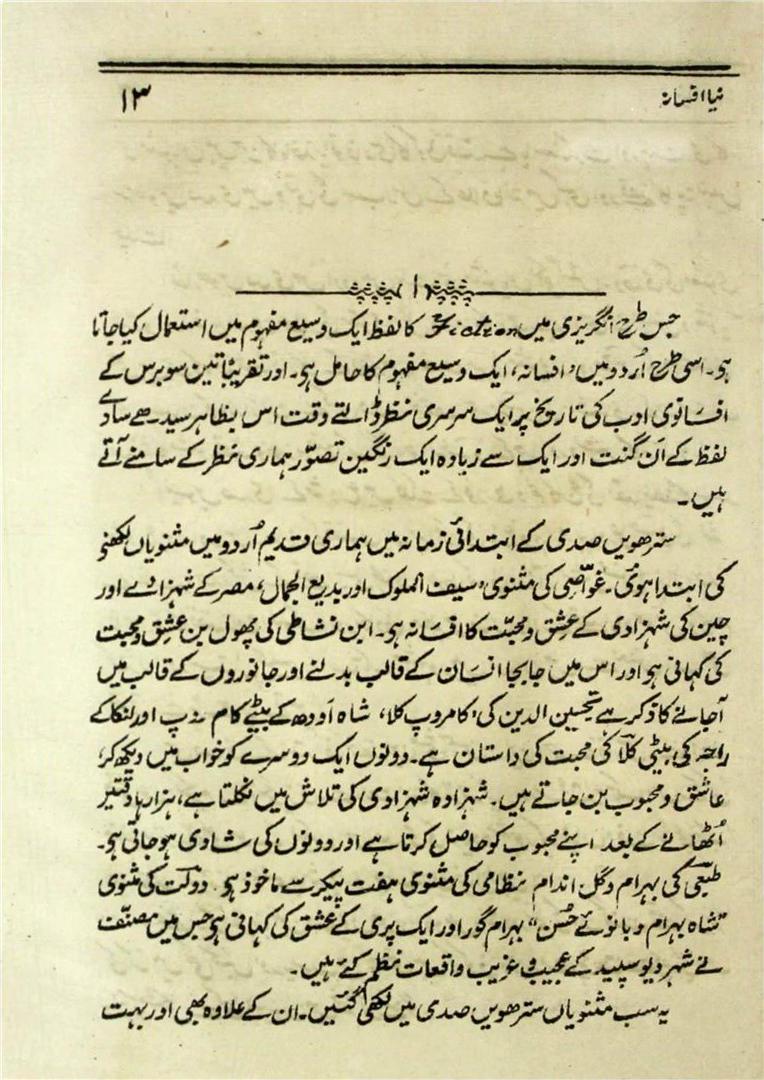 نیا افسانہ
۱۳
۱
جس طرح انگریزی میں Fiction کا لفظ ایک وسیع مفہوم میں استعمال کیا جاتا
ہو۔ اسی طرح اُردو میں ’افسانہ‘، ایک وسیع مفہوم کا حامل ہو۔ اور تقریباً تین سو برس کے
افسانوی ادب کی تاریخ پر ایک سرسری نظر ڈالتے وقت اس بظاہر سیدھے سادے
لفظ کے اَن گنت اور ایک سے زیادہ ایک رنگین تصوّر ہماری نظر کے سامنے آتے
ہیں۔
سترھویں صدی کے ابتدائی زمانہ میں ہماری قدیم اُردو میں مثنویاں لکھنی
کی ابتدا ہوئی۔ غوّاصی کی مثنوی ’سیف الملوک اور بدیع الجمال‘، مصر کے شہزادے اور
چین کی شہزادی کے عشق و محبّت کا افسانہ ہو۔ ابن نشاطی کی پھول بن عشق و محبت
کی کہانی ہو اور اس میں جابجا انسان کے قالب بدلنے اور جانوروں کے قالب میں
آجانے کا ذکر ہے تحسین الدین کی ’کامروپ کلا‘، شاہ اَودھ کے بیٹے کام روپ اور لنکا کے
راجہ کی بیٹی کَلا کی محبت کی داستان ہے۔ دونوں ایک دوسرے کو خواب میں دیکھ کر،
عاشق و محبوب بن جاتے ہیں۔ شہزادہ شہزادی کی تلاش میں نکلتا ہے، ہزارہا دقتیں
اُٹھانے کے بعد اپنے محبوب کو حاصل کرتا ہے اور دونوں کی شادی ہو جاتی ہو۔
طبعی کی بہرام و گل اندام نظامی کی مثنوی ہفت پیکر سے ماخوذ ہو۔ دولت کی مثنوی
”شاہ بہرام و بانوئے حُسن“ بہرام گور اور ایک پری کے عشق کی کہانی ہو جس میں مصنّف
نے شہر دیو سپید کے عجیب و غریب واقعات نظم کئے ہیں۔
یہ سب مثنویاں سترھویں صدی میں لکھی گئیں۔ ان کے علاوہ بھی اور بہت